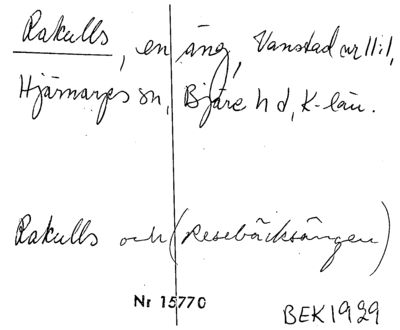 Rakulls, en äng, Vanstad nr 11:1,
Hjärnarps sn, Bjäre hd, K-län.
Rakulls och (Resebäcksängen)
Nr 15770
BEK 1929